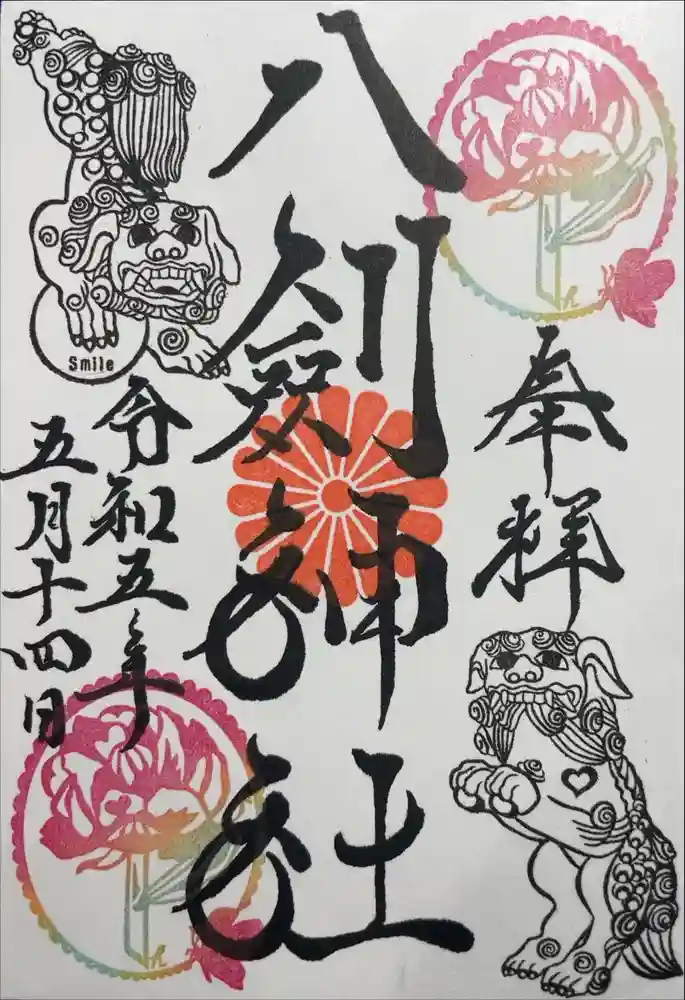 奉拜
八劔神社
令和五年
五月十四日
Smile